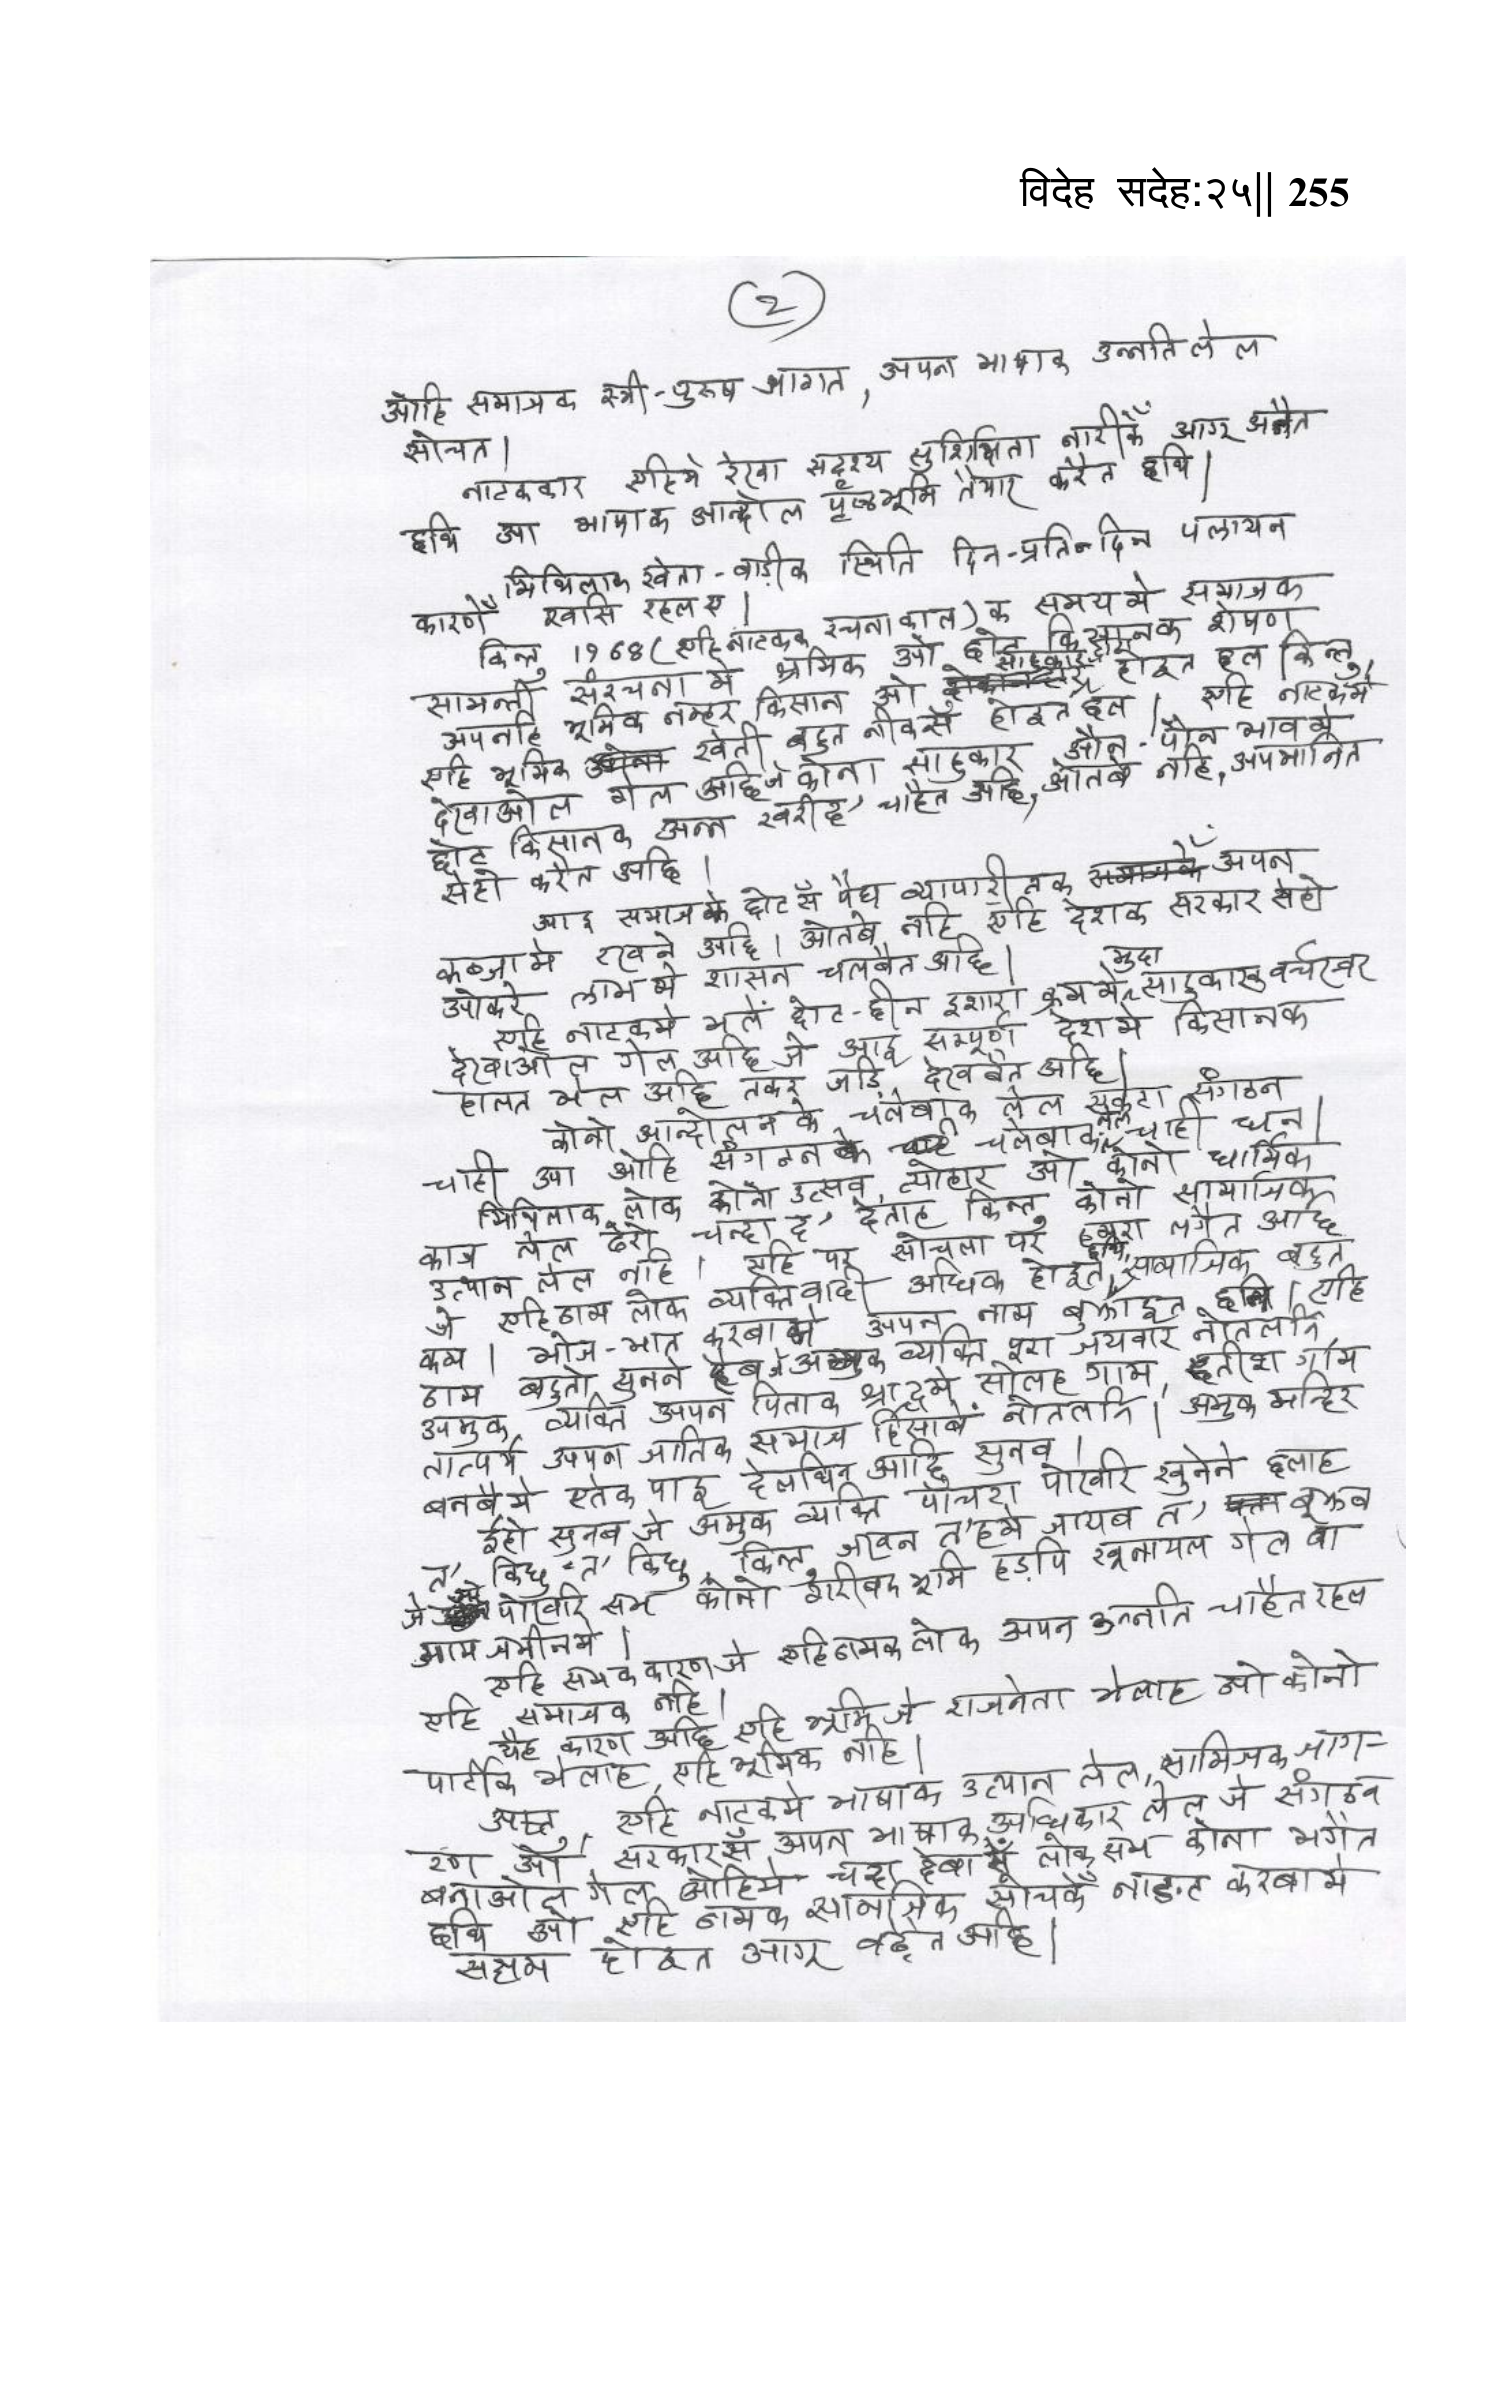 विदेह सदेह:२५|| 255
(२)
ओहि समाजक स्त्री-पुरुष आगत, अपना भाषाक उन्नति लेल
सोचत।
नाटककार एहिमे रेखा सदृश्य सुशिक्षिता नारीकेँ आगू अनैत
छथि आ भाषाक आन्दोल पृष्ठभूमि तैयार करैत छथि।
मिथिलाक खेता-बाड़ीक स्थिति दिन-प्रति-दिन पलायन
कारणेँ खसि रहलए।
किन्तु 1968 (एहि नाटकक रचनाकाल) क समयमे समाजक
सामन्ती संरचनामे श्रमिक ओ छोट किसानक शोषण
अपनहि भूमिक नम्हर किसान ओ साहूकार द्वारा होइत छल किन्तु
एहि भूमिक खेती बहुत नीकसँ होइत छल। एहि नाटकमे
देखाओल गेल अछि जे कोना साहुकार औन-पौन भावमे
छोट किसानक अन्न खरीद' चाहैत अछि, ओतबे नहि, अपमानित
सेहो करैत अछि।
आइ समाजक छोटसँ पैघ व्यापारी तक अपन
कब्जामे रखने अछि। ओतबे नहि एहि देशक सरकार सेहो
ओकरे लाभमे शासन चलबैत अछि।
एहि नाटकमे भलें छोट-छीन इशारा क्रममे मुदा साहुकारक वर्चस्व
देखाओल गेल अछि जे आइ सम्पूर्ण देशमे किसानक
हालत भेल अछि तकर जड़ि देखबैत अछि।
कोनो आन्दोलन के चलेबाक लेल एकटा संगठन
चाही आ ओहि संगठनके चलेबाक लेल चाही धन।
मिथिलाक लोक कोनो उत्सव, त्योहार ओ कोनो धार्मिक
काज लेल ढेरो चन्दा द' देताह किन्तु कोनो सामाजिक
उत्थान लेल नहि। एहि पर सोचला पर हमरा लगैत अछि
जे एहिठाम लोक व्यक्तिवादी अधिक होइत छथि, सामाजिक बहुत
कम। भोज-भात करबामे अपन नाम बुझाइत छन्हि। एहि
ठाम बहुतो सुनने हैब जे अमुक व्यक्ति पूरा जयवार नोतलनि,
अमुक व्यक्ति अपन पिताक श्राद्धमे सोलह गाम, छतीश गाम
तात्पर्य अपन जातिक समाज हिसाबें नोतलनि। अमुक मन्दिर
बनबैमे एतेक पाइ देलथिन आदि सुनब।
ईहो सुनब जे अमुक व्यक्ति पाँचटा पोखरि खुनेने छलाह
त' किछु-त' किछु, किन्तु जखन त'हमे जायब त' बूझब
जे पोखरि सभ कोनो गरीबक भूमि हड़पि खूनायल गेल वा
आम जमीनमे।
एहि सभक कारण जे एहिठामक लोक अपन उन्नति चाहैत रहल
एहि समाजक नहि।
यैह कारण अछि एहि भूमि जे राजनेता भेलाह ओ कोनो
पार्टीक भेलाह, एहि भूमिक नहि।
एहि नाटकमे भाषाक उत्थान लेल, सामिजक जाग-
रण ओ सरकारसँ अपन भाषाक अधिकार लेल जे संगठन
बनाओल गेल ओहिमे चन्दा देबासँ लोक सभ कोना भगैत
छथि ओ एहि ठामक सामाजिक सोचकेँ नाङट करबामे
सक्षम होइत आगू बढ़ैत अछि।